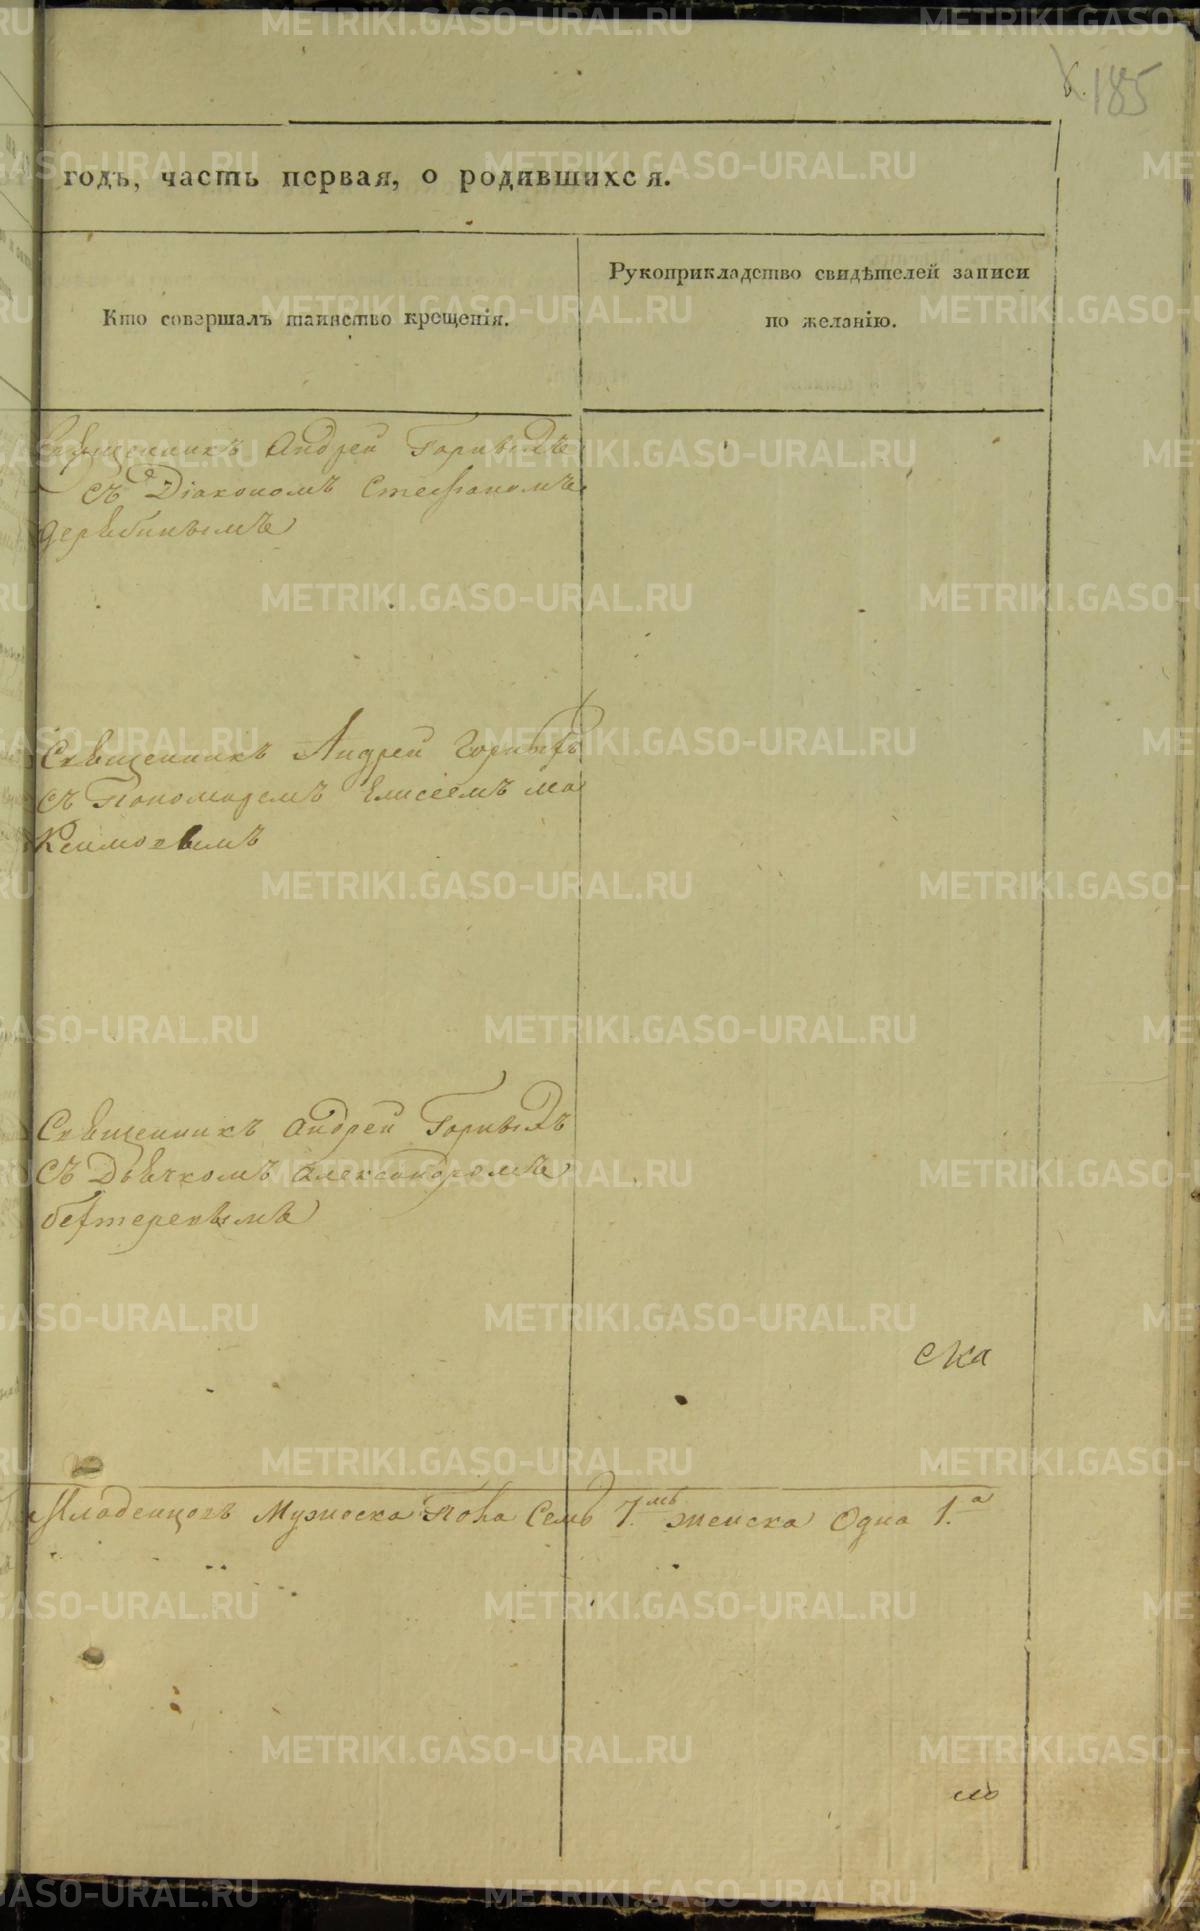 185
годъ, часть первая, о родившихся.
Кто совершалъ таинство крещенія.
Рукоприкладство свидѣтелей записи
по желанію.
Священникъ Андрей Горныхъ
съ Діакономъ Стефаномъ
Дерябинымъ
Священникъ Андрей Горныхъ
съ Пономаремъ Елисеемъ Ма
Ксимовымъ
Священникъ Андрей Горныхъ
съ Дьячкомъ Александромъ
бехтеревымъ
ска
Младенцовъ Мужеска Пола Семь 7.мь женска Одна 1.а
METRIKI.GASO-URAL.RU